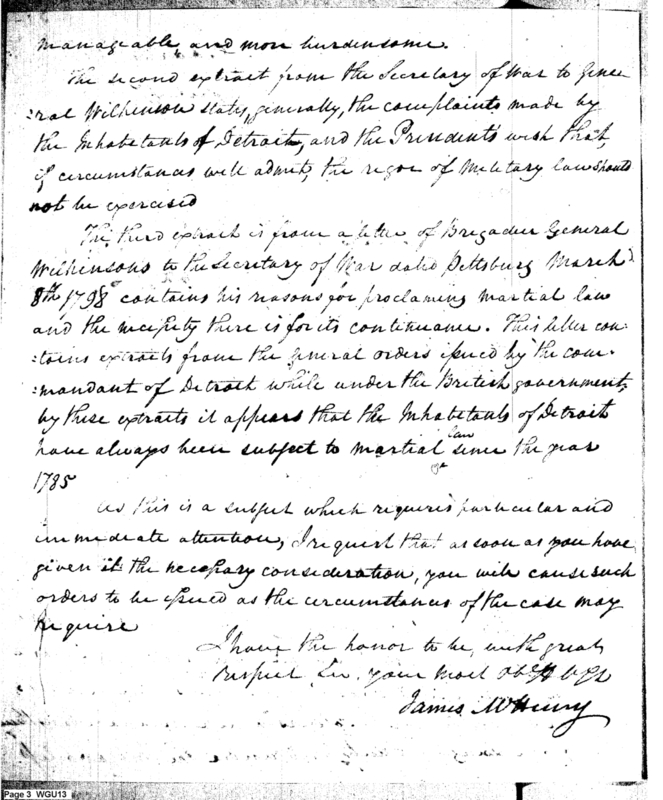 manageable, and more burdensome.
The second extract from the Secretary of War to Gene
:ral Wilkinson states, generally, the complaints made by
the Inhabetants of Detroit, and the Presidents wish that,
if circumstances will admit, the rigor of Military law should
not be exercised
The third extract is from a letter of Brigadier General
Wilkinsons to the Secretary of War dated Pittsburg March
8th 1798 contains his reasons for proclaming martial law
and the necessity there is for its continuance. This letter con:
:tains extracts from the general orders issued by the com:
:mandant of Detroit while under the British government,
by these extracts it appears that the Inhabetants of Detroit
have always been subject to martial law since the year
1785
As this is a subject which requires particular and
immediate attention, I request that as soon as you have
given it the necessary consideration, you will cause such
orders to be issued as the circumstances of the case may
require
I have the honor to be, with great
respect Sir, your most
James McHenry
Page 3 WGU13